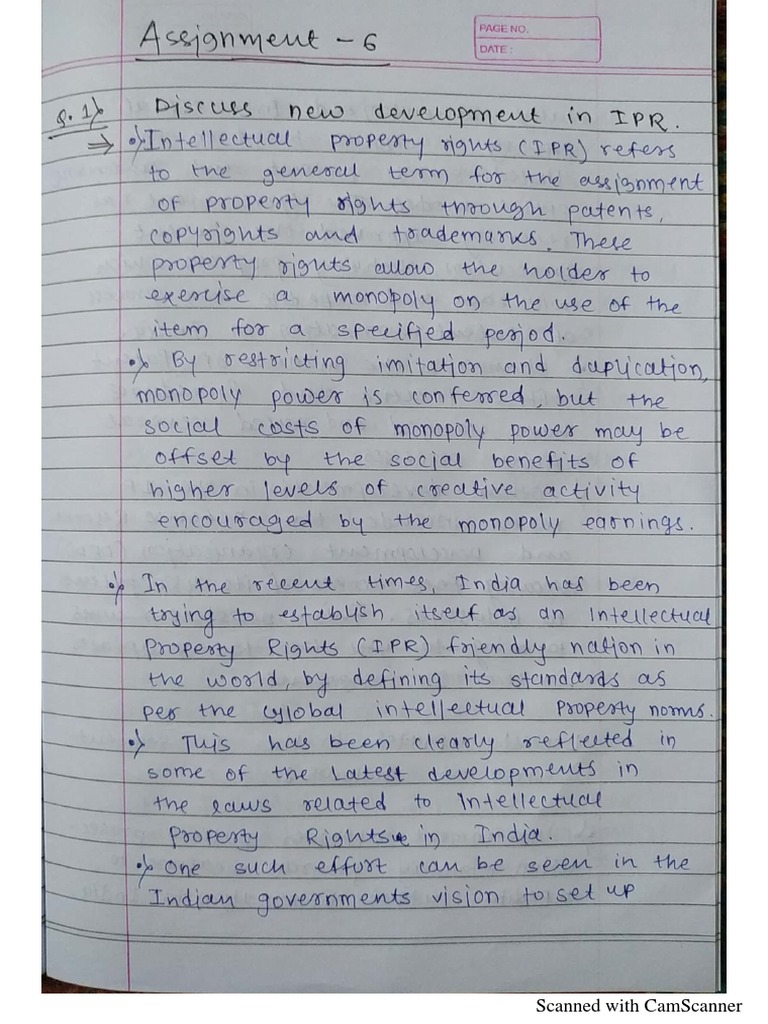 Assignment - 6
PAGE NO.
DATE :
Q.1) Discuss new development in IPR.
⇒ •) Intellectual property rights (IPR) refers
to the general term for the assignment
of property rights through patents,
copyrights and trademarks. These
property rights allow the holder to
exercise a monopoly on the use of the
item for a specified period.
•) By restricting imitation and duplication,
monopoly power is conferred, but the
social costs of monopoly power may be
offset by the social benefits of
higher levels of creative activity
encouraged by the monopoly earnings.
•) In the recent times, India has been
trying to establish itself as an Intellectual
Property Rights (IPR) friendly nation in
the world, by defining its standards as
per the Global intellectual Property norms.
•) This has been clearly reflected in
some of the Latest developments in
the laws related to Intellectual
Property Rights in India.
•) One such effort can be seen in the
Indian governments vision to set up
Scanned with CamScanner